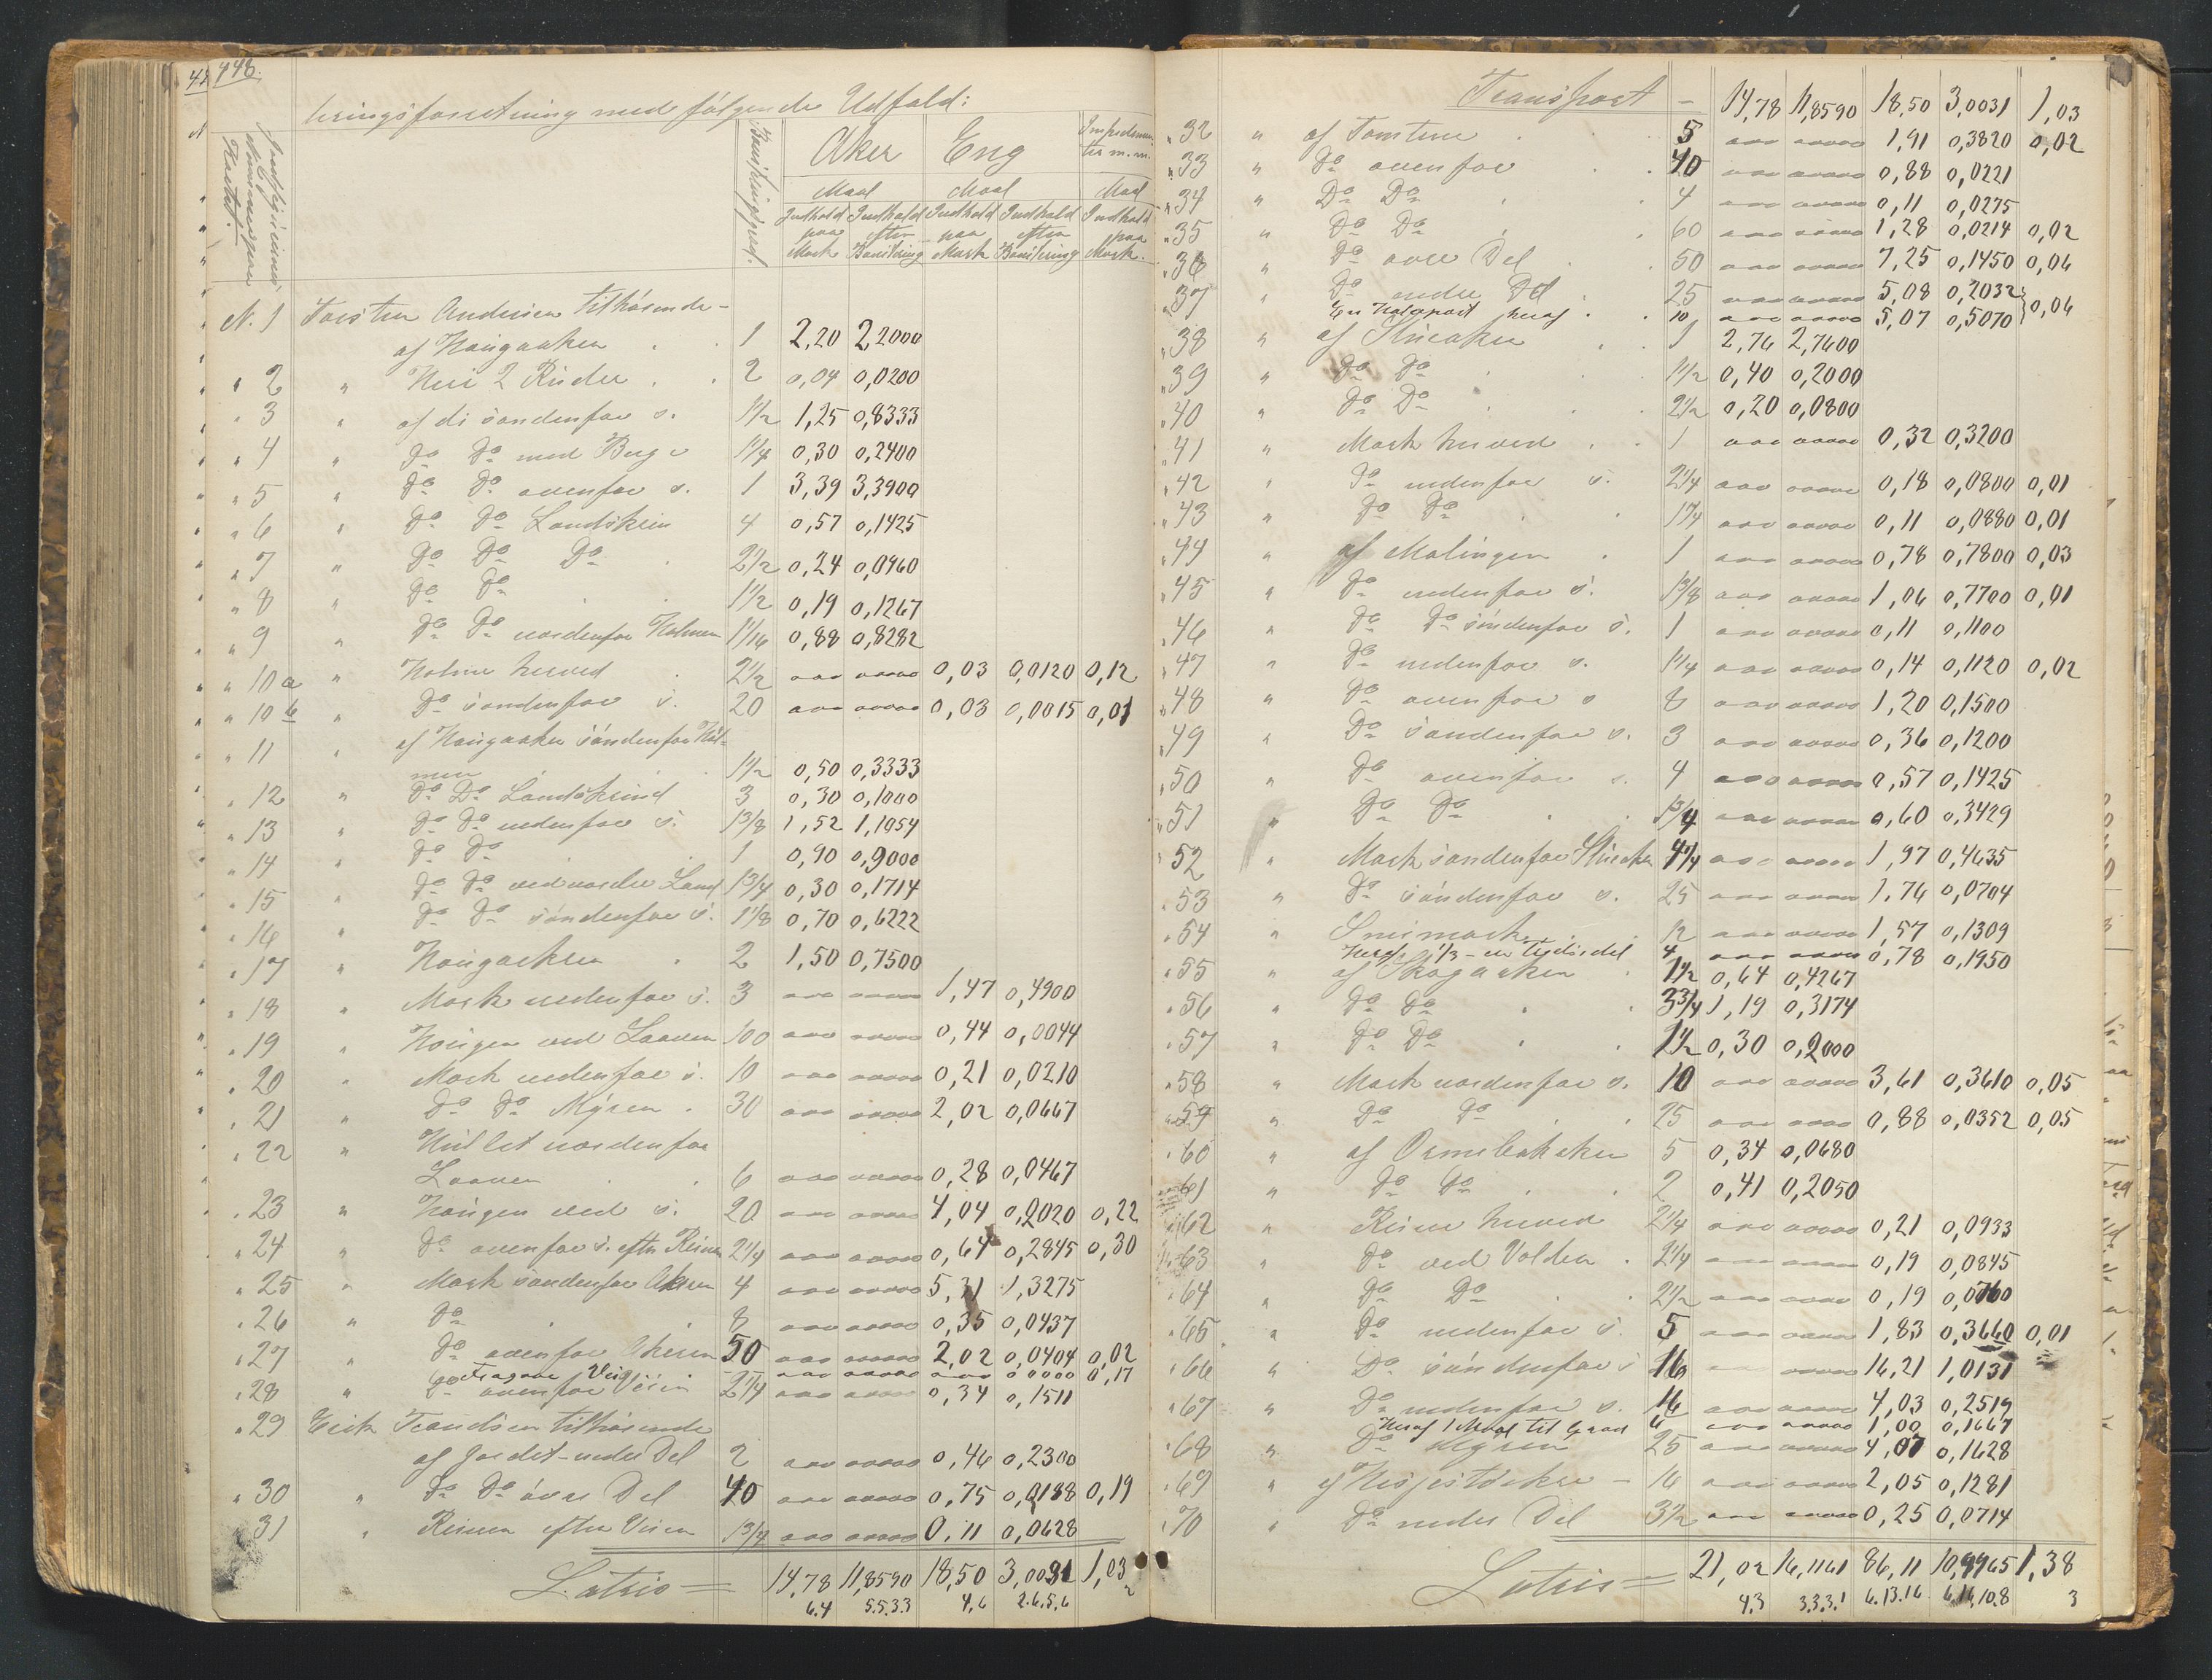 448.
bringsforretning med følgende Udfald:
Aker Eng
Maal Maal Maal
Indhold Indhold Indhold Indhold Indhold
paa efter paa efter paa
Mark Bonitering Mark Bonitering Mark.
N. 1 Torsten Andersen tilhørende
af Haugaaker 1 2,20 2,2000
" 2 " 2 0,04 0,0200
" 3 " af di søndenfor s. 1½ 1,25 0,8333
" 4 " Do Do med Berge 1¼ 0,30 0,2400
" 5 " Do Do ovenfor s. 1 3,39 3,3900
" 6 " Do Do Landskein 4 0,57 0,1425
" 7 " Do Do Do 2½ 0,24 0,0960
" 8 " Do Do 1½ 0,19 0,1267
" 9 " Do Do nordenfor Holmen 1 1/16 0,88 0,8282
" 10a " Holme herved 2½ 0,03 0,0120 0,12
" 10b " Do søndenfor s. 20 0,03 0,0015 0,01
" 11 " af Haugaaker søndenfor Hol-
men 1½ 0,50 0,3333
" 12 " Do Do Landskeind 3 0,30 0,1000
" 13 " Do Do nedenfor s. 1 3/8 1,52 1,1054
" 14 " Do Do 1 0,90 0,9000
" 15 " Do Do ved nordre Land 1¾ 0,30 0,1714
" 16 " Do Do søndenfor s. 1 1/8 0,70 0,6222
" 17 " Haugaakren 2 1,50 0,7500
" 18 " Mark nedenfor s. 3 1,47 0,4900
" 19 " Haugen ved Laaven 100 0,44 0,0044
" 20 " Mark nedenfor s. 10 0,21 0,0210
" 21 " Do Do Myren 30 2,02 0,0667
" 22 " nordenfor
Laaven 6 0,28 0,0467
" 23 " Haugen ved s. 20 4,04 0,2020 0,22
" 24 " Do ovenfor s. efter Reinen 2¼ 0,64 0,2845 0,30
" 25 " Mark søndenfor Akren 4 5,31 1,3275
" 26 " Do 8 0,35 0,0437
" 27 " Do ovenfor Akeren 50 2,02 0,0404 0,02
Vei 0,17
" 28 " Do ovenfor Veien 2¼ 0,34 0,1511
" 29 Erik Trondsen tilhørende
af Jordet nedre Del 2 0,46 0,2300
" 30 " Do Do øvre Del 40 0,75 0,0188 0,19
" 31 " Reinen efter Veien 1¾ 0,11 0,0628
Latris = 14,78 11,8590 18,50 3,0031 1,03
6.4 5.5.3.3 4,6 2.6.5.6 2
Transport - 14,78 11,8590 18,50 3,0031 1,03
" 32 " af Tomtene 5 1,91 0,3820 0,02
" 33 " Do ovenfor 40 0,88 0,0221
" 34 " Do Do 4 0,11 0,0275
" 35 " Do Do 60 1,28 0,0214 0,02
" 36 " Do øvre Del 50 7,25 0,1450 0,06
" 37 " Do nedre Del 25 5,08 0,2032
En Halvpart heraf 10 5,07 0,5070 } 0,06
" 38 " af Stueaker 1 2,76 2,7600
" 39 " Do Do 1½/2 0,40 0,2000
" 40 " Do Do 2½ 0,20 0,0800
" 41 " Mark herved 1 0,32 0,3200
" 42 " Do nedenfor s. 2¼ 0,18 0,0800 0,01
" 43 " Do Do 1¼ 0,11 0,0880 0,01
" 44 " af Malingen 1 0,78 0,7800 0,03
" 45 " Do nedenfor s. 1 3/8 1,06 0,7700 0,01
" 46 " Do Do søndenfor s. 1 0,11 0,1100
" 47 " Do nedenfor s. 1¼ 0,14 0,1120 0,02
" 48 " Do ovenfor s 8 1,20 0,1500
" 49 " Do søndenfor s. 3 0,36 0,1200
" 50 " Do ovenfor s. 4 0,57 0,1425
" 51 " Do Do 1¾ 0,60 0,3429
" 52 " Mark søndenfor Stueaker 4¼ 1,97 0,4635
" 53 " Do søndenfor s. 25 1,76 0,0704
" 54 " 12 1,57 0,1309
Heraf 1/3 4 0,78 0,1950
" 55 " af Skogaaker 1½ 0,64 0,4267
" 56 " Do Do 3¾ 1,19 0,3174
" 57 " Do Do 1½ 0,30 0,2000
" 58 " Mark nordenfor s. 10 3,61 0,3610 0,05
" 59 " Do Do 25 0,88 0,0352 0,05
" 60 " af 5 0,34 0,0680
" 61 " Do Do 2 0,41 0,2050
" 62 " Reine herved 2¼ 0,21 0,0933
" 63 " Do ved Volden 2¼ 0,19 0,0845
" 64 " Do Do 2½ 0,19 0,0760
" 65 " Do nedenfor s. 5 1,83 0,3660 0,01
" 66 " Do søndenfor s 16 16,21 1,0131
" 67 " Do nedenfor s. 16 4,03 0,2519
Heraf 1 Maal til 6 1,00 0,1667
" 68 " Do Myren 25 4,07 0,1628
" 69 " af 16 2,05 0,1281
" 70 " Do nedre Del 3½ 0,25 0,0714
Latris = 21,02 16,1161 86,11 10,9965 1,38
4.3 3.3.3.1 6.13.16 6.16.10.8 3